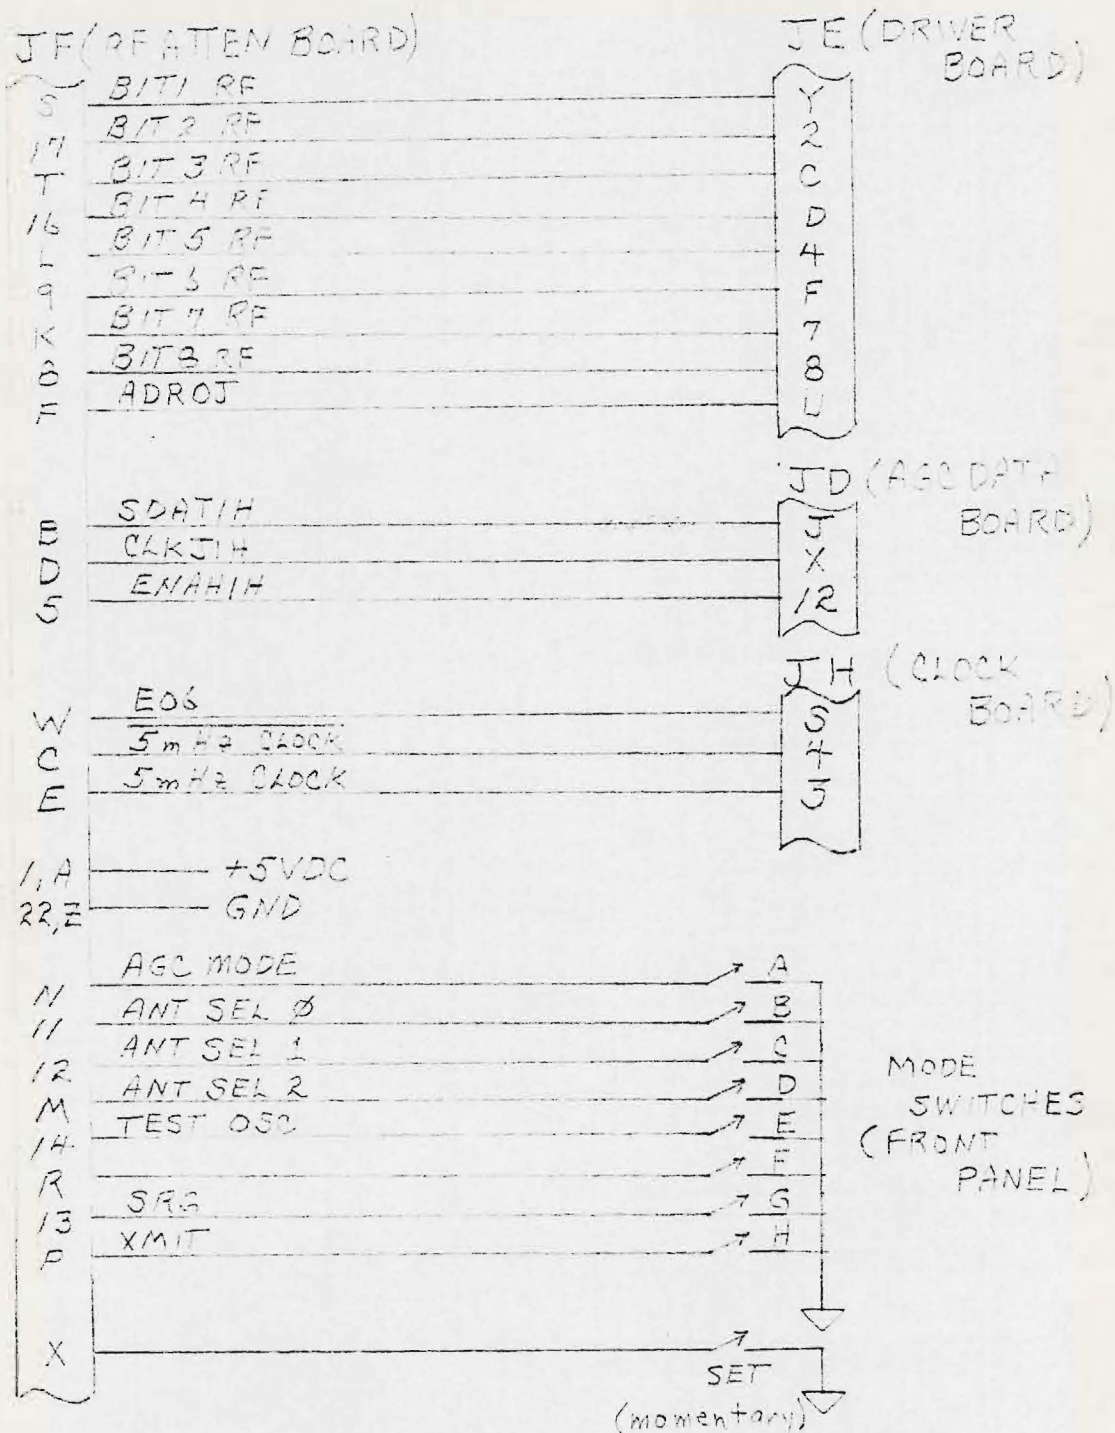 JF (RF ATTEN BOARD)
JE (DRIVER
BOARD)
S BIT 1 RF Y
17 BIT 2 RF 2
T BIT 3 RF C
16 BIT 4 RF D
L BIT 5 RF 4
9 BIT 6 RF F
K BIT 7 RF 7
8 BIT 8 RF 8
F ADR0J U
JD (AGC DATA
BOARD)
B SDAT1H J
D CLKJ1H X
5 ENAH1H 12
JH (CLOCK
BOARD)
W E06 5
C 5mHz CLOCK 4
E 5mHz CLOCK 3
1, A +5VDC
22, Z GND
N AGC MODE A
11 ANT SEL Ø B
12 ANT SEL 1 C
M ANT SEL 2 D
14 TEST OSC E
R F
13 G
P XMIT H
MODE
SWITCHES
(FRONT
PANEL)
X
SET
(momentary)